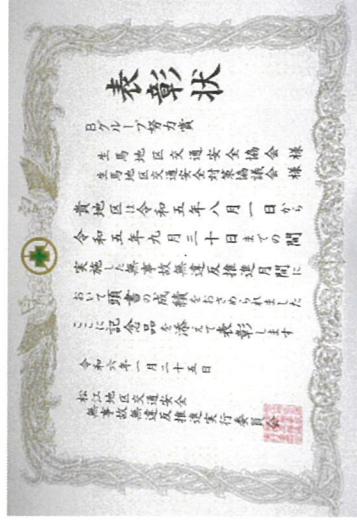 表彰状
Bグループ努力賞
生馬地区交通安全協会 様
生馬地区交通安全対策協議会 様
貴地区は令和五年八月一日から
令和五年九月三十日までの間
実施した無事故無違反推進月間に
おいて頭書の成績をおさめられました
ここに記念品を添えて表彰します
令和六年一月二十五日
松江地区交通安全会
無事故無違反推進実行委員会